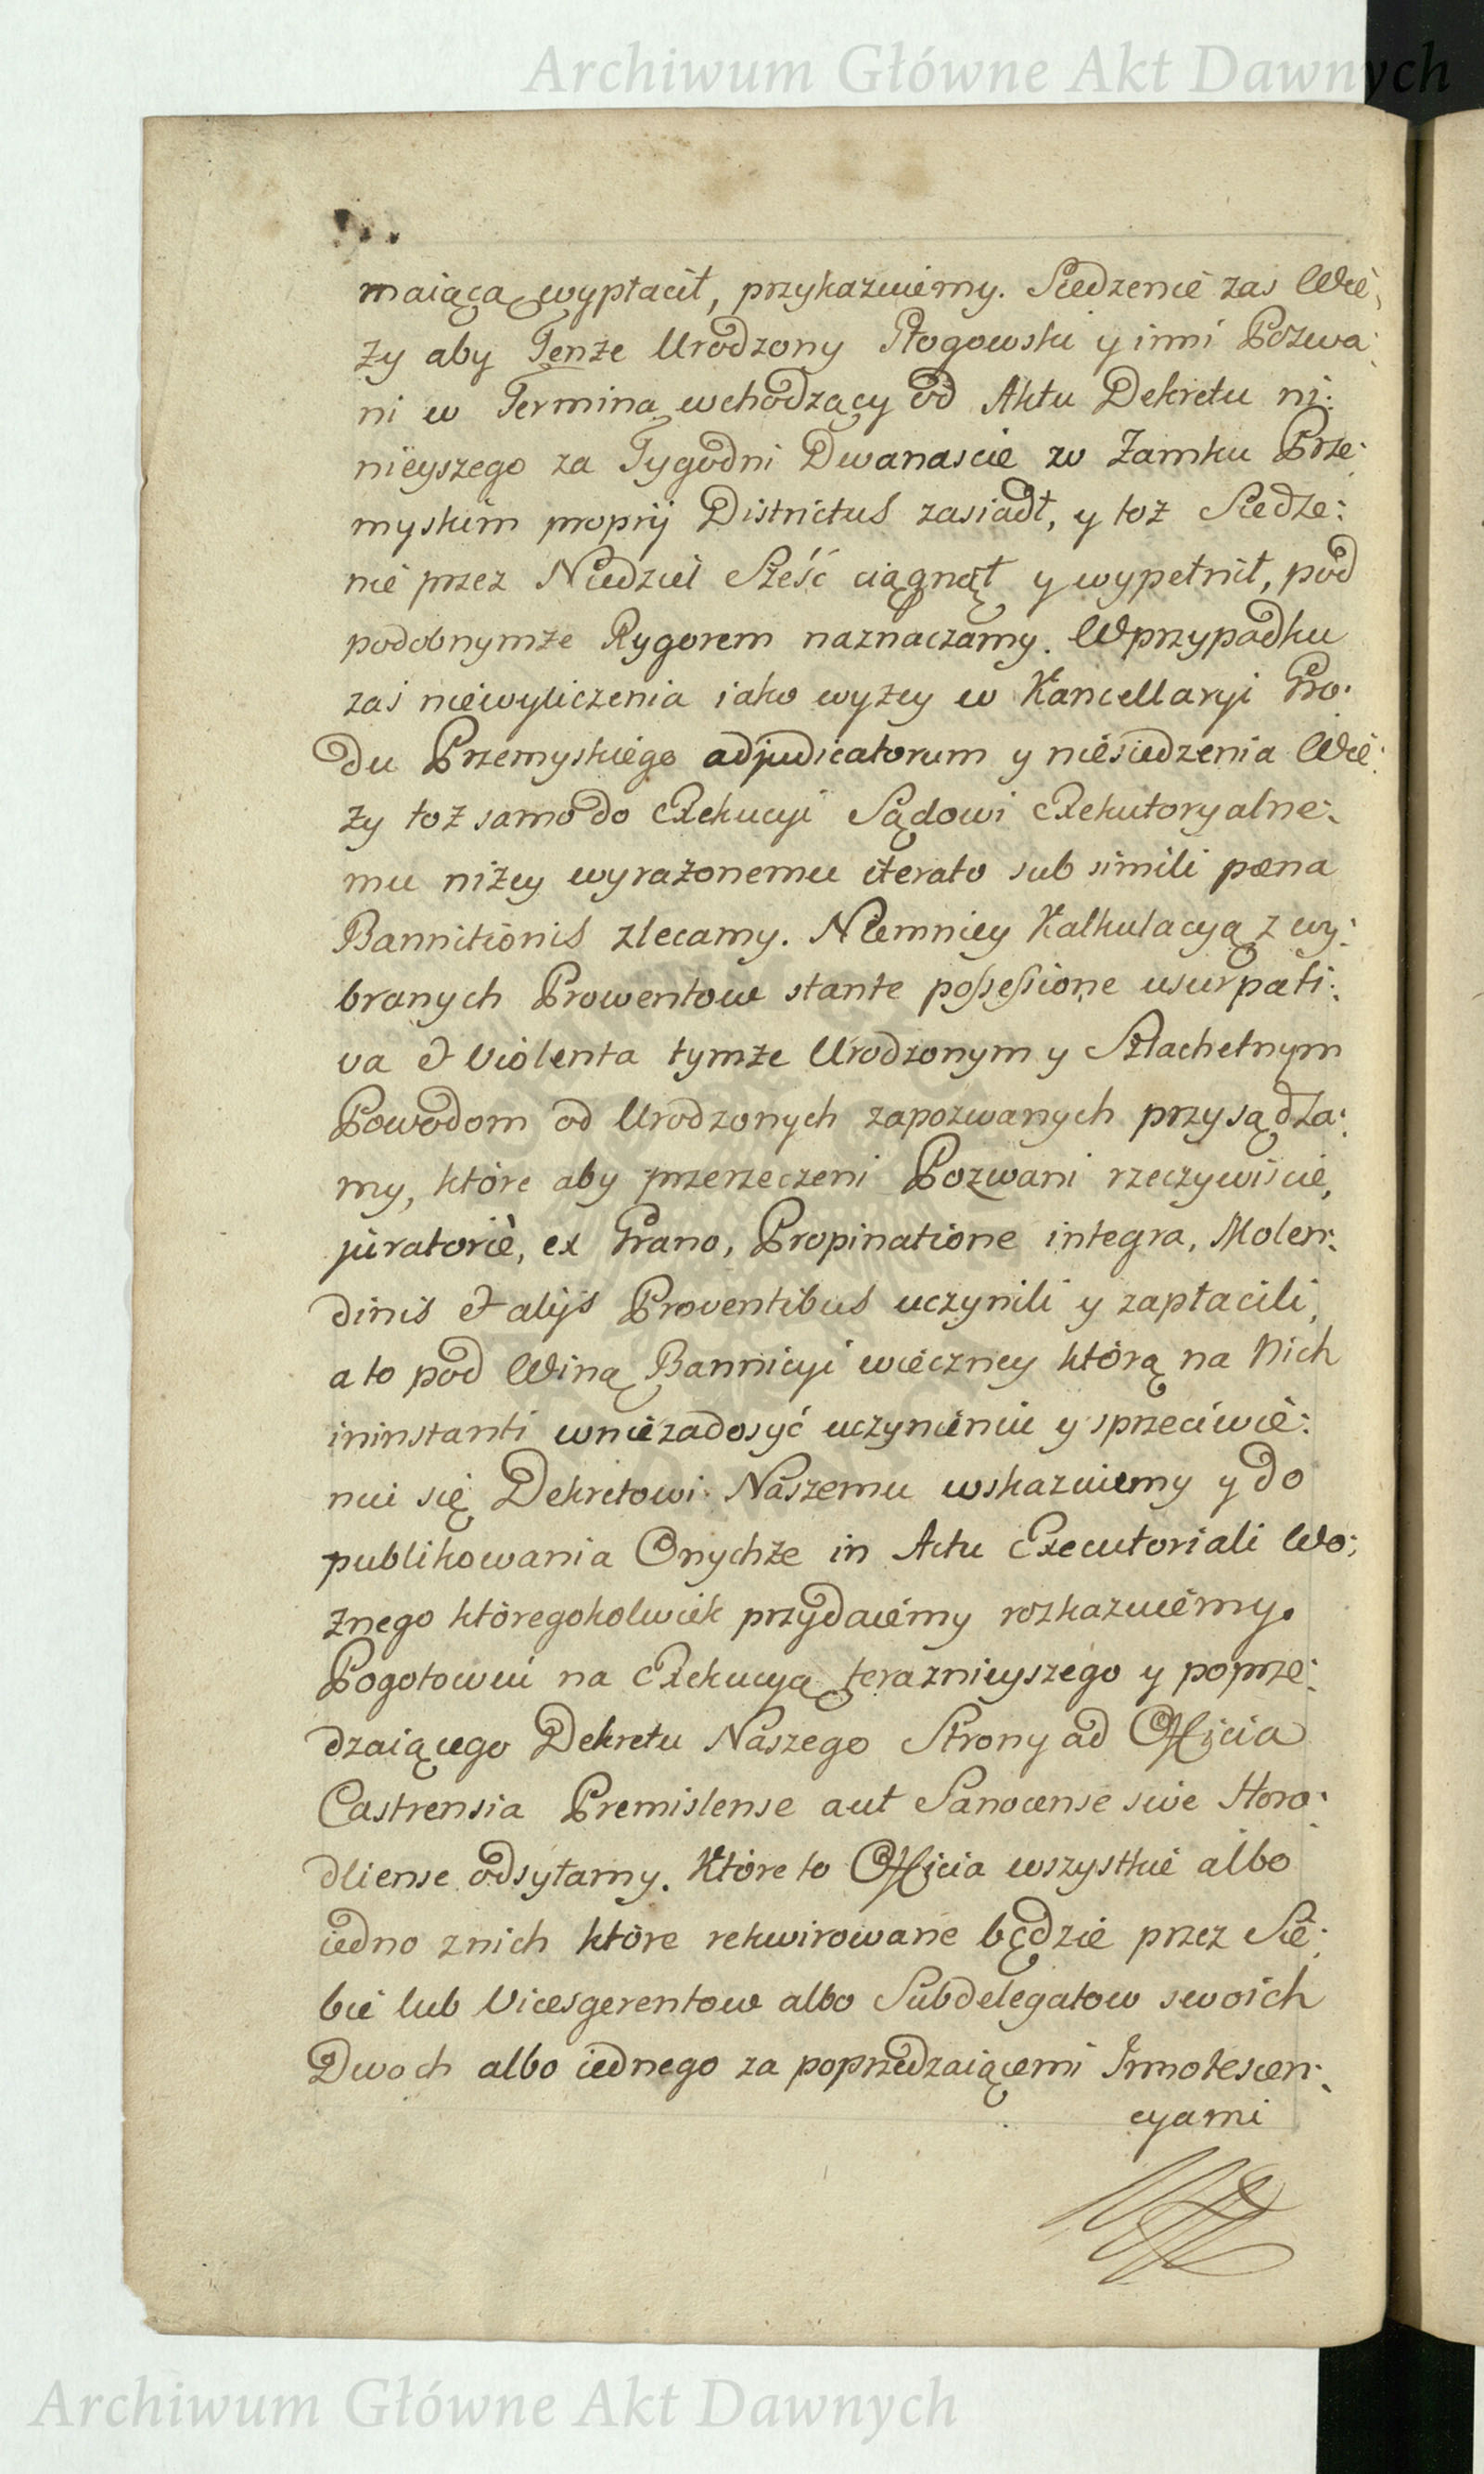 Archiwum Główne Akt Dawnych
maiącą wypłacił, przykazuiemy. Siedzenie zas Wie:
ży aby Tenże Urodzony Głogowski y inni Pozwa:
ni w Termina wchodzący od Aktu Dekretu ni:
nieyszego za Tygodni Dwanascie w Zamku Prze:
myskim proprij Districtus zasiadł, y toż Siedze:
nie przez Niedziel Sześć ciągnął y wypełnił, pod
podobnymże Rygorem naznaczamy. W przypadku
zaś niewyliczenia iako wyżey w Kancellaryi Gro:
du Przemyskiego adjudicatorum y niesiedzenia Wie:
ży toż samo do Exekucyi Sądowi Exekutoryalne:
mu niżey wyrażonemu iterato sub simili pœna
Bannitionis zlecamy. Niemniey Kalkulacyą z wy:
branych Prowentow stante possessione usurpati:
va et violenta tymże Urodzonym y Szlachetnym
Powodom od Urodzonych zapozwanych przysądza:
my, które aby przerzeczeni Pozwani rzeczywiscie,
juratoriè, ex Grano, Propinatione integra, Molen:
dinis et alijs Proventibus uczynili y zapłacili,
a to pod Winą Bannicyi wieczney którą na Nich
ininstanti w niezadosyć uczynieniu y sprzeciwie:
niu się Dekretowi Naszemu wskazuiemy y do
publikowania Onychże in Actu Executoriali Wo:
źnego któregokolwiek przydaiemy rozkazuiemy.
Pogotowiu na Exekucyą teraznieyszego y poprze:
dzaiącego Dekretu Naszego Strony ad Officia
Castrensia Premislense aut Sanocense sive Horo:
dliense odsyłamy. Które to Officia wszystkie albo
iedno z nich które rekwirowane będzie przez Sie:
bie lub Vicesgerentow albo Subdelegatow swoich
Dwoch albo iednego za poprzedzaiącemi Innotescen:
cyami
Archiwum Główne Akt Dawnych